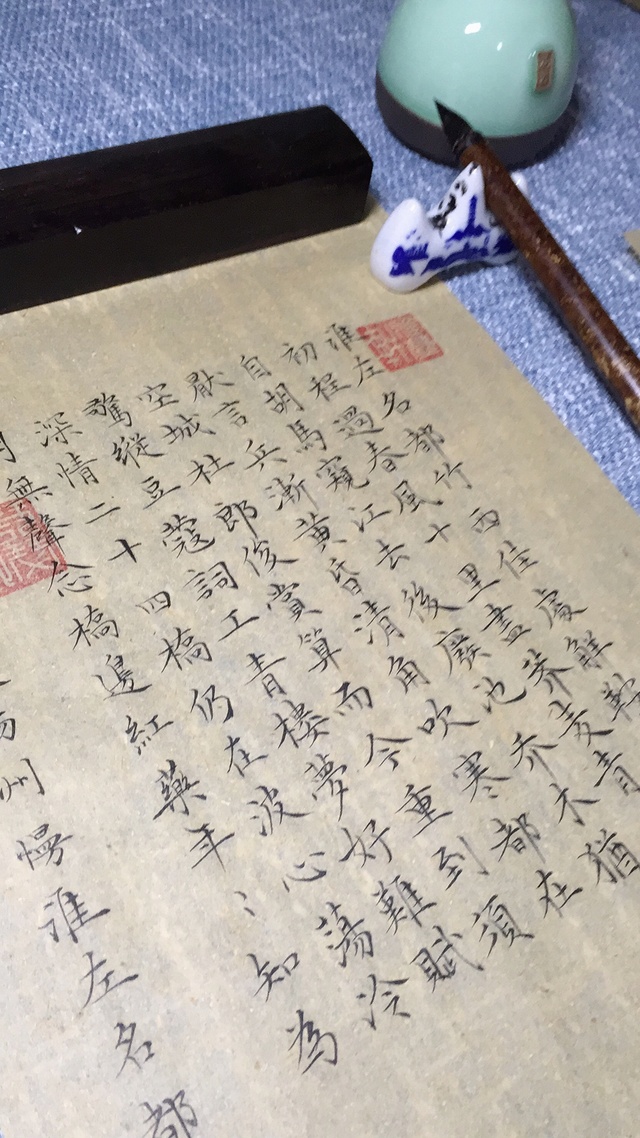 淮左名都竹西佳處解
初程過春風十里盡荠麦青
自胡馬窺江去後廢池乔木猶
厭言兵漸黃昏清角吹寒都在
空城杜郎俊賞算而今重到須
驚縱豆蔻詞工青樓夢好難賦
深情二十四橋仍在波心蕩冷
月無聲念橋邊紅藥年〻知為
州慢淮左名都